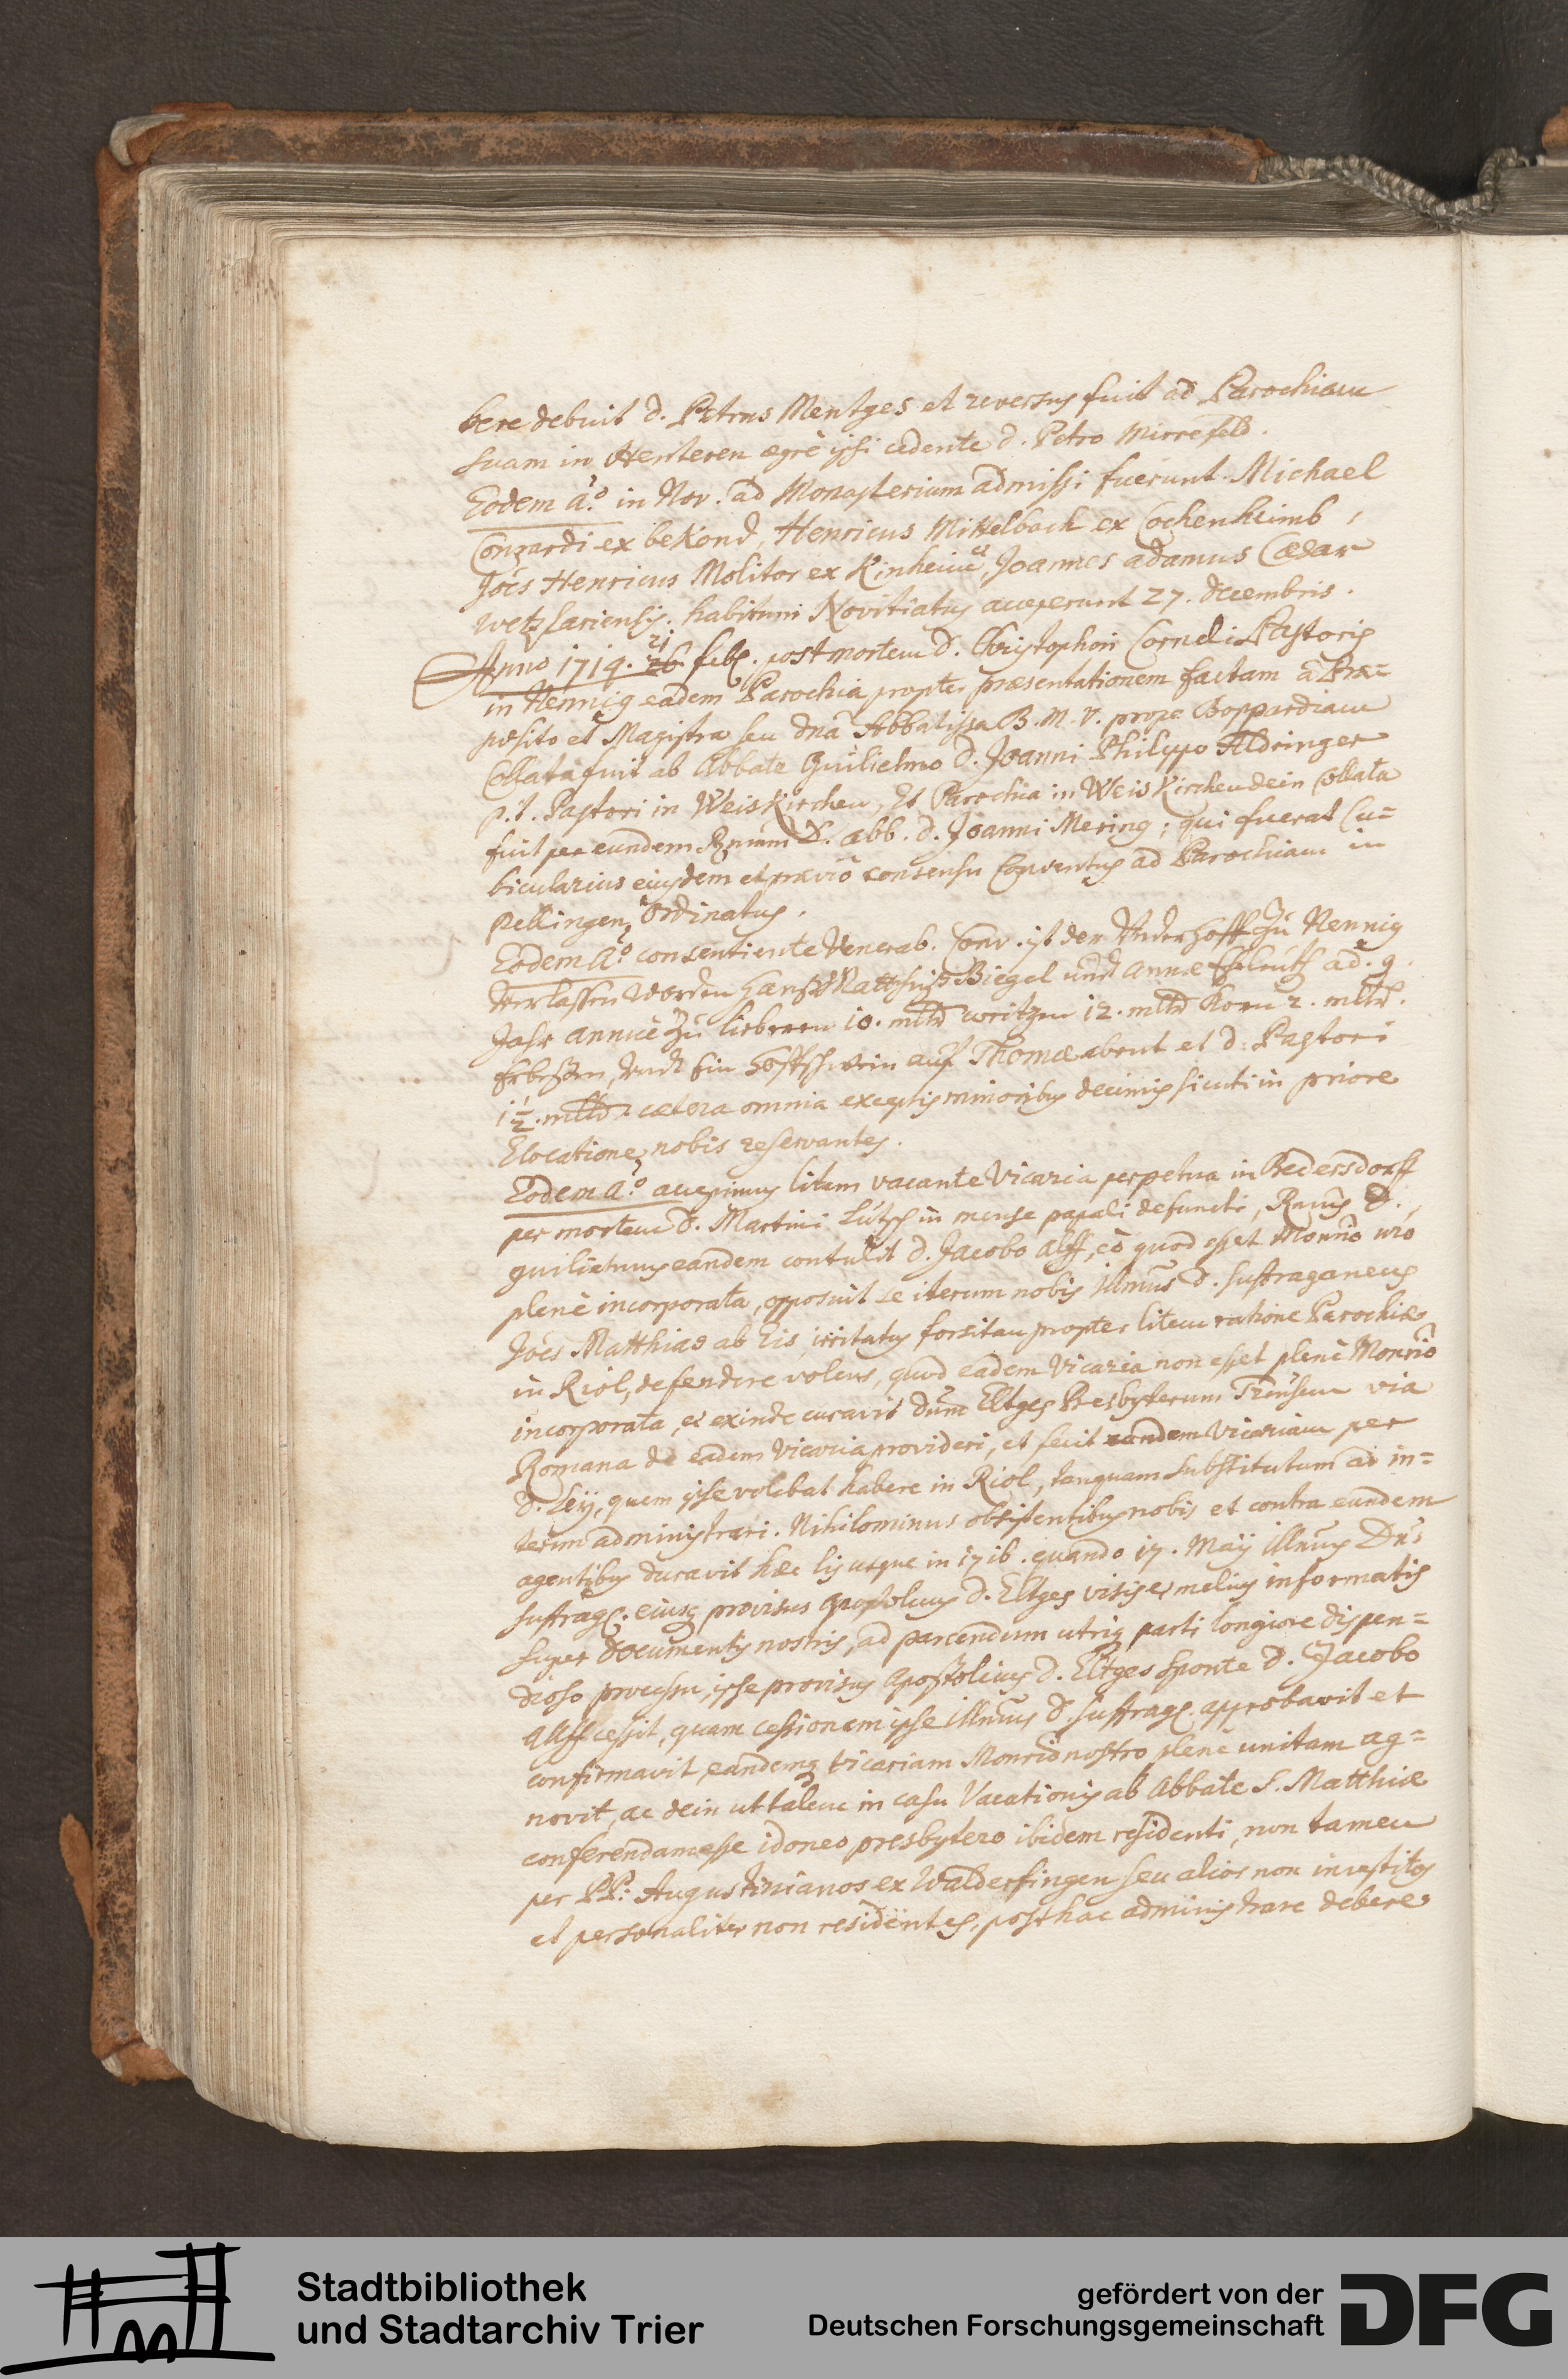 bere debuit d. Petrus Mentges et reversus fuit ad Parochiam
suam in Henteren ægrè ipsi cedente d. Petro Mirrefeld.
Eodem a.º in Nov. ad Monasterium admissi fuerunt Michael
Conzardi ex bekond, Henricus Mittelbach ex Cochenheimb,
Jões Henricus Molitor ex Kinheim et Joannes adamus Cædar
wetzlariensis. habitum Novitiatus acceperunt 27. decembris.
Anno 1714. 21 feb. post mortem d. Christophori Corneli Pastoris
in Nennig eadem Parochia propter præsentationem factam a Præ=
posito et Magistra seu dnã Abbatissa B. M. V. prope Boppardiam
Collata fuit ab Abbate Guilielmo d. Joanni Philippo Aldringer
p. t. Pastori in Weiskirchen, Et Parochia in Weiskirchen dein Collata
fuit per eundem Rmum D. abb. d. Joanni Mering; qui fuerat Cu=
bicularius eiusdem et prævio consensu Conventus ad Parochiam in
Pellingen ordinatus.
Eodem A.º consentiente Venerab. Conv. ist der Underhoff zu Nennig
verlassen worden Hanß Matthiß Biegel und annæ Ehleuth ad. 9.
Jahr annuè zu lieberen 10. mltr weitzen 12. mltr Korn 2. mltr.
Erbeßen, undt Ein Hoffschwein auf Thomæ abent et d. Pastori
1 1/2. mltr cætera omnia exceptis minoribus decimis sicuti in priore
Elocatione nobis reservantes.
Eodem A.º accepimus litem vacante Vicaria perpetua in Bedersdorff
per mortem d. Martini Lutsch in mense papali defuncti, Rmus D.
guilielmus eandem contulit d. Jacobo Alff, eò quod esset Monrio nro
plenè incorporata, opposuit se iterum nobis Illmus d. suffraganeus
Jões Matthias ab Eis, irritatus forsitan propter litem ratione Parochiæ
in Riol, defendere volens, quod eadem Vicaria non esset plenè Monrio
incorporata, et exinde curavit dnum Eltges Presbyterum Trensem via
Romana de eadem Vicaria provideri, et fecit eandem Vicariam per
d. Leÿ, quem ipse volebat habere in Riol, tanquam substitutum ad in=
terim administrari. Nihilominus obsistentibus nobis et contra eundem
agentibus duravit hæc lis usque in 1716. quando 17. Maÿ illmus Dñs
suffrag. eiusq provisus apostolicus d. Eltges visis et melius informatis
super documentis nostris, ad parcendum utriq parti longiore dispen=
dioso processu, ipse provisus apostolicus d. Eltges sponte d. Jacobo
Alff cessit, quam cessionem ipse illmus d. suffrag. approbavit et
confirmavit, eandemq vicariam Monrio nostro plenè unitam ag=
novit, ac dein ut talem in casu Vacationis ab Abbate S. Matthiæ
conferendam esse idoneo presbytero ibidem residenti, non tamen
per PP. Augustinianos ex Walderfingen seu alios non investitos
et personaliter non residentes, posthac administrare debere
Stadtbibliothek
und Stadtarchiv Trier
gefördert von der
Deutschen Forschungsgemeinschaft
DFG